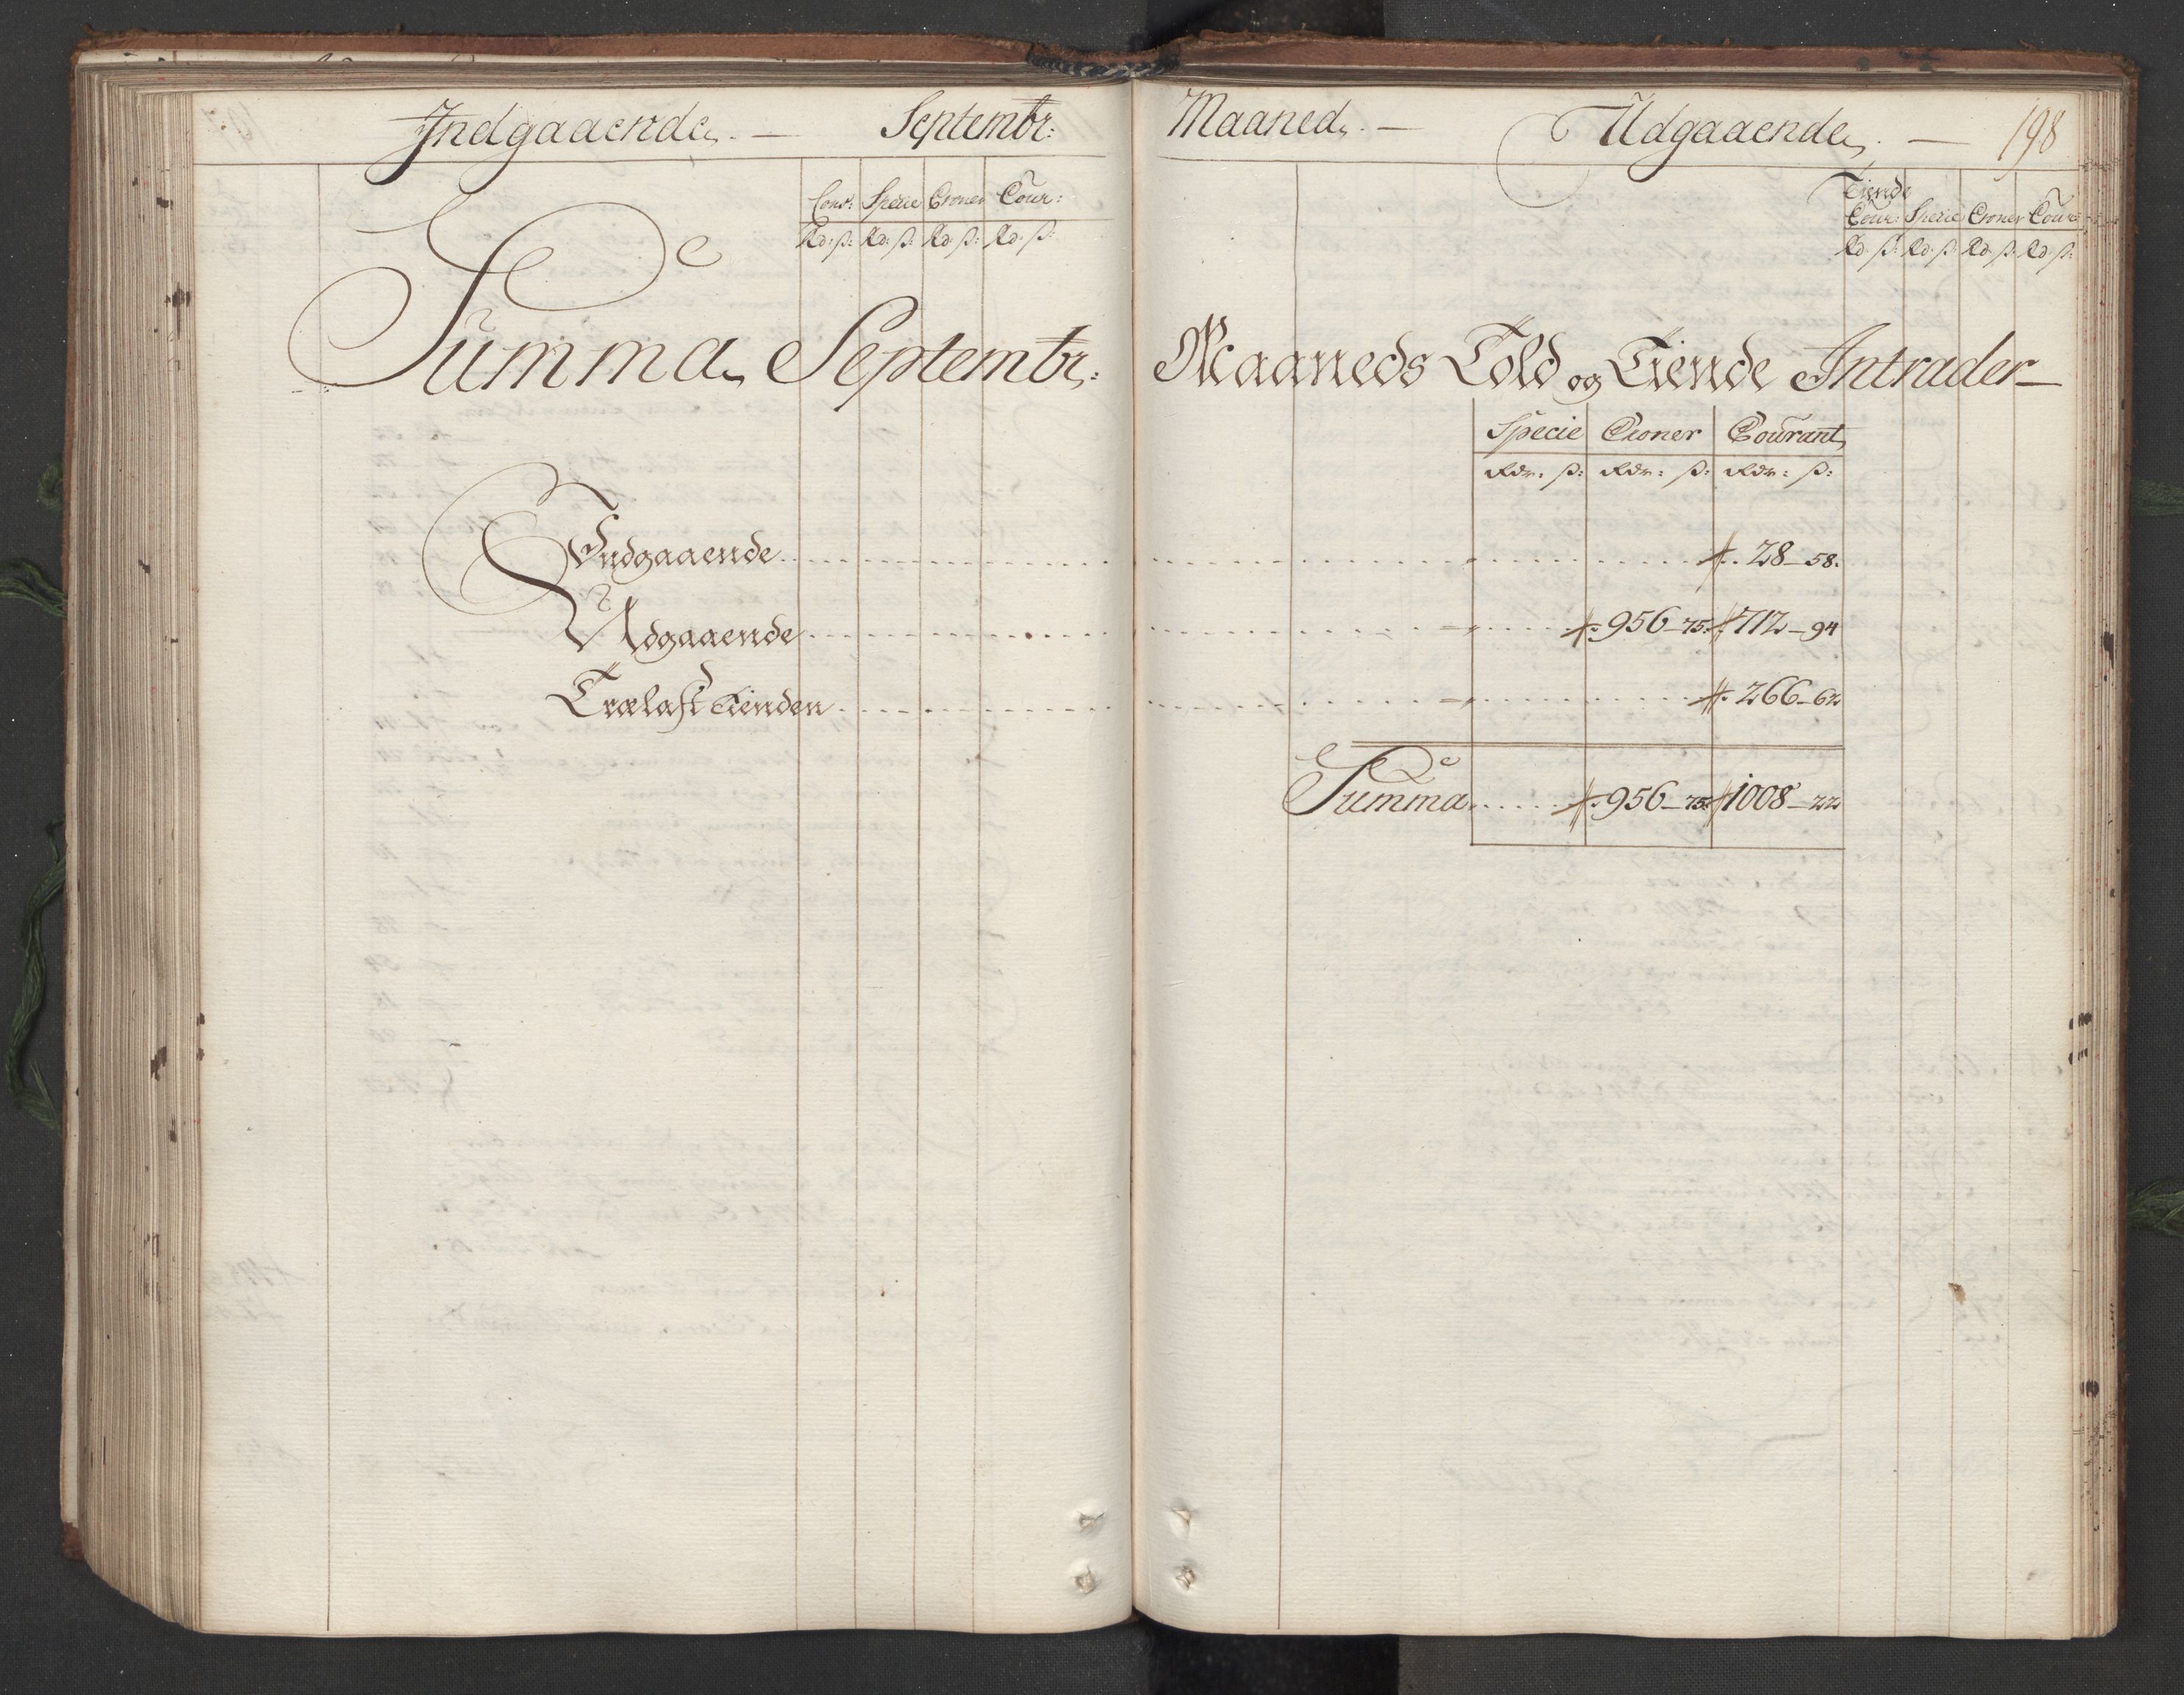 Indgaaende. — Septembr: Maaned. — Udgaaende. — 198
Cons: Specie Croner Cour:
Rd: ß: Rd: ß: Rd: ß: Rd: ß:
Tiende
Cour: Specie Croner Cour:
Rd. ß: Rd. ß: Rd. ß: Rd. ß:
Summa Septembr: Maaneds Told og Tiende Intrader —
Specie Croner Courant
Rdr. ß: Rdr: ß: Rdr: ß:
Indgaaende 28 – 58.
Udgaaende 956 – 75: 712 – 94
Trælast Tienden 266 – 62
Summa 956 – 75: 1008 – 22